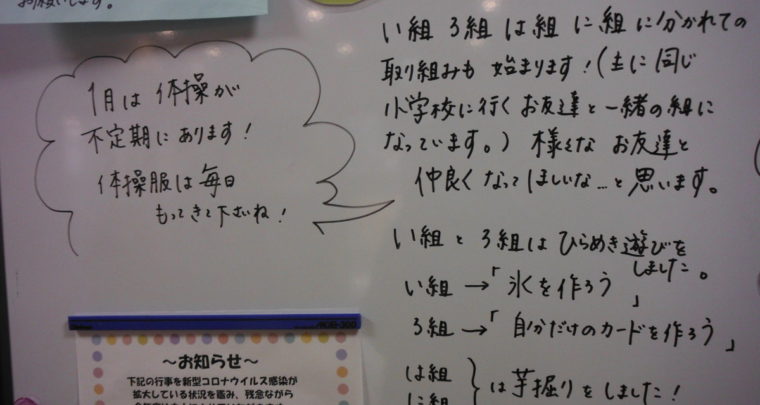 お願いします。
1月は 体操が
不定期にあります!
体操服は毎日
もってきて下さいね!
い組 ろ組 は組 に組 に分かれての
取り組みも 始まります!(主に同じ
小学校に行く お友達と一緒の組に
なっています。) 様々な お友達と
仲良く なってほしいな…と思います。
い組 と ろ組は ひらめき遊びを
しました。
い組 →「氷を作ろう」
ろ組 →「自分だけのカードを作ろう」
は組
に組
} は芋掘りをしました!
~お知らせ~
下記の行事を新型コロナウイルス感染が
拡大している状況を鑑み、残念ながら